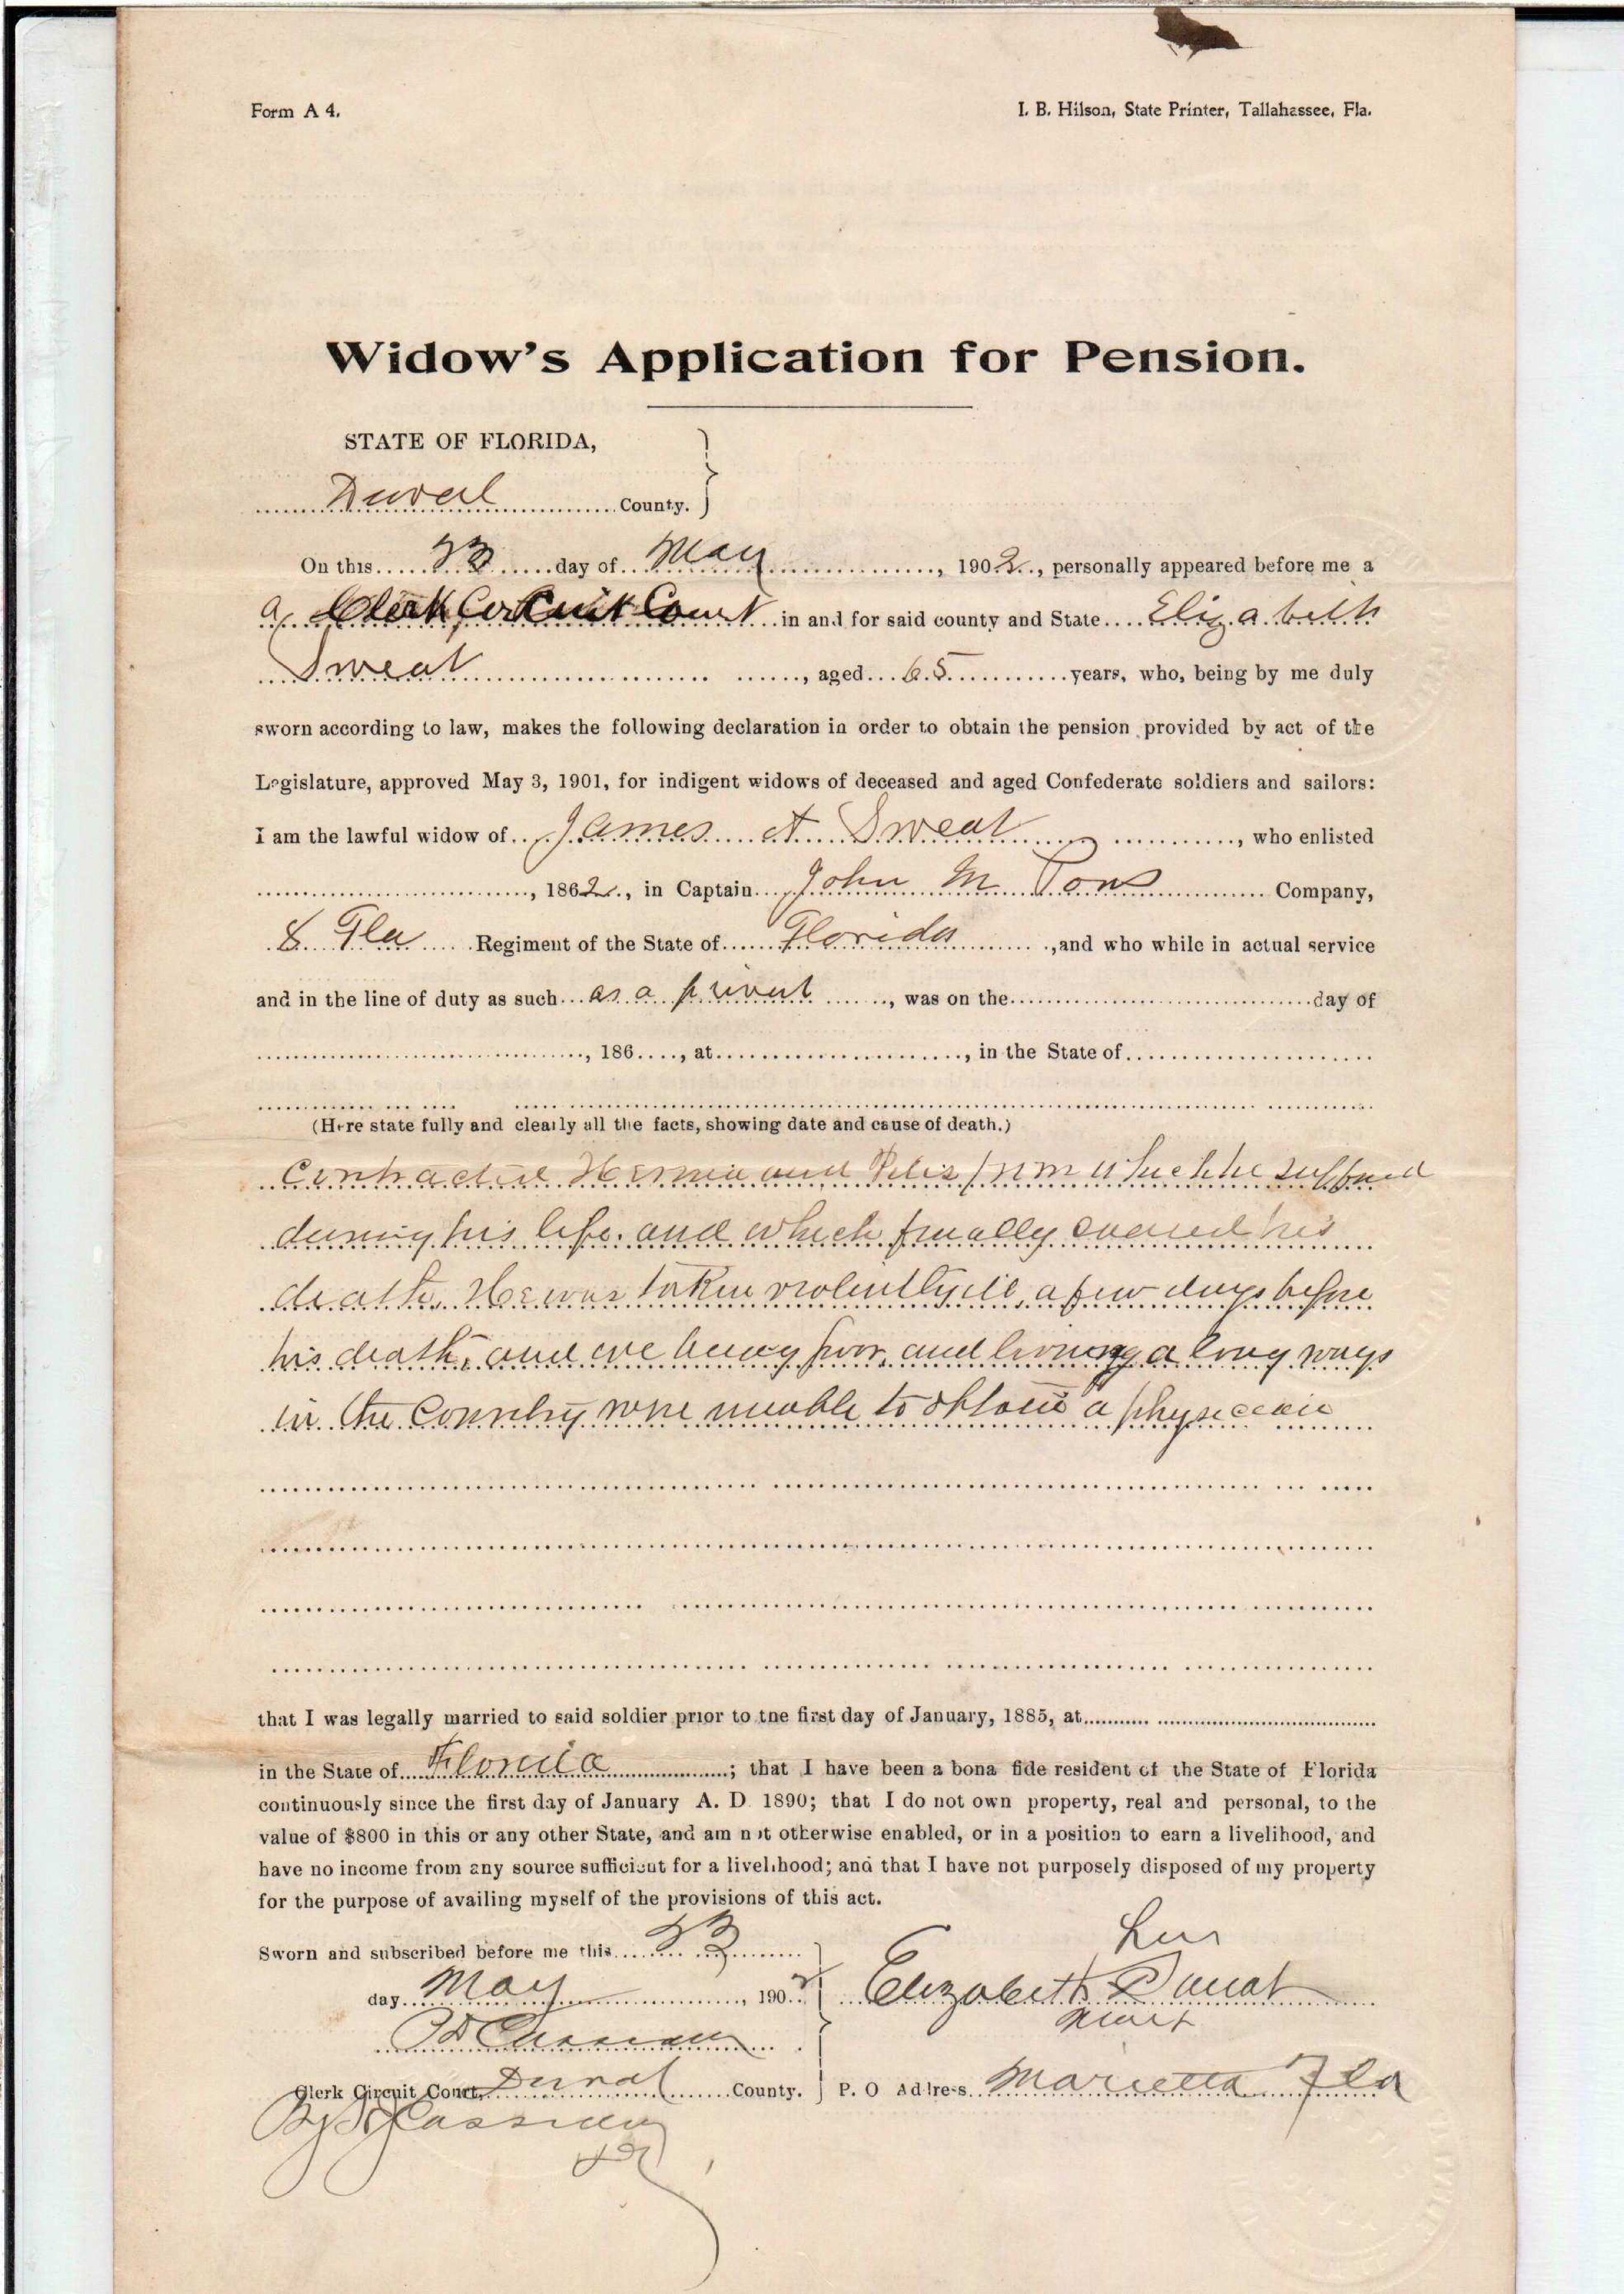 Form A 4.
I. B. Hilson, State Printer, Tallahassee, Fla.
Widow's Application for Pension.
STATE OF FLORIDA,
Duval County.
On this 23 day of May, 1902, personally appeared before me a
a Clerk Circuit Court in and for said county and State Elizabeth
Sweat, aged 65 years, who, being by me duly
sworn according to law, makes the following declaration in order to obtain the pension provided by act of the
Legislature, approved May 3, 1901, for indigent widows of deceased and aged Confederate soldiers and sailors:
I am the lawful widow of James A Sweat, who enlisted
, 1862, in Captain John M Pons Company,
8 Fla Regiment of the State of Florida, and who while in actual service
and in the line of duty as such as a privat, was on the day of
, 186, at, in the State of
(Here state fully and clearly all the facts, showing date and cause of death.)
Contracted Hernia and Piles from which he suffered
during his life. and which finally caused his
death. He was taken violently ill, a few days before
his death, and we being poor, and living a long ways
in the Country were unable to obtain a physician
that I was legally married to said soldier prior to the first day of January, 1885, at
in the State of Florida; that I have been a bona fide resident of the State of Florida
continuously since the first day of January A. D. 1890; that I do not own property, real and personal, to the
value of $800 in this or any other State, and am not otherwise enabled, or in a position to earn a livelihood, and
have no income from any source sufficient for a livelihood; and that I have not purposely disposed of my property
for the purpose of availing myself of the provisions of this act.
Sworn and subscribed before me this 23
day May, 1902
her
Elizabeth x Sweat
mark
P D Cassidey
Clerk Circuit Court, Duval County.
P. O Address Marietta Fla
By Cassidey
DC